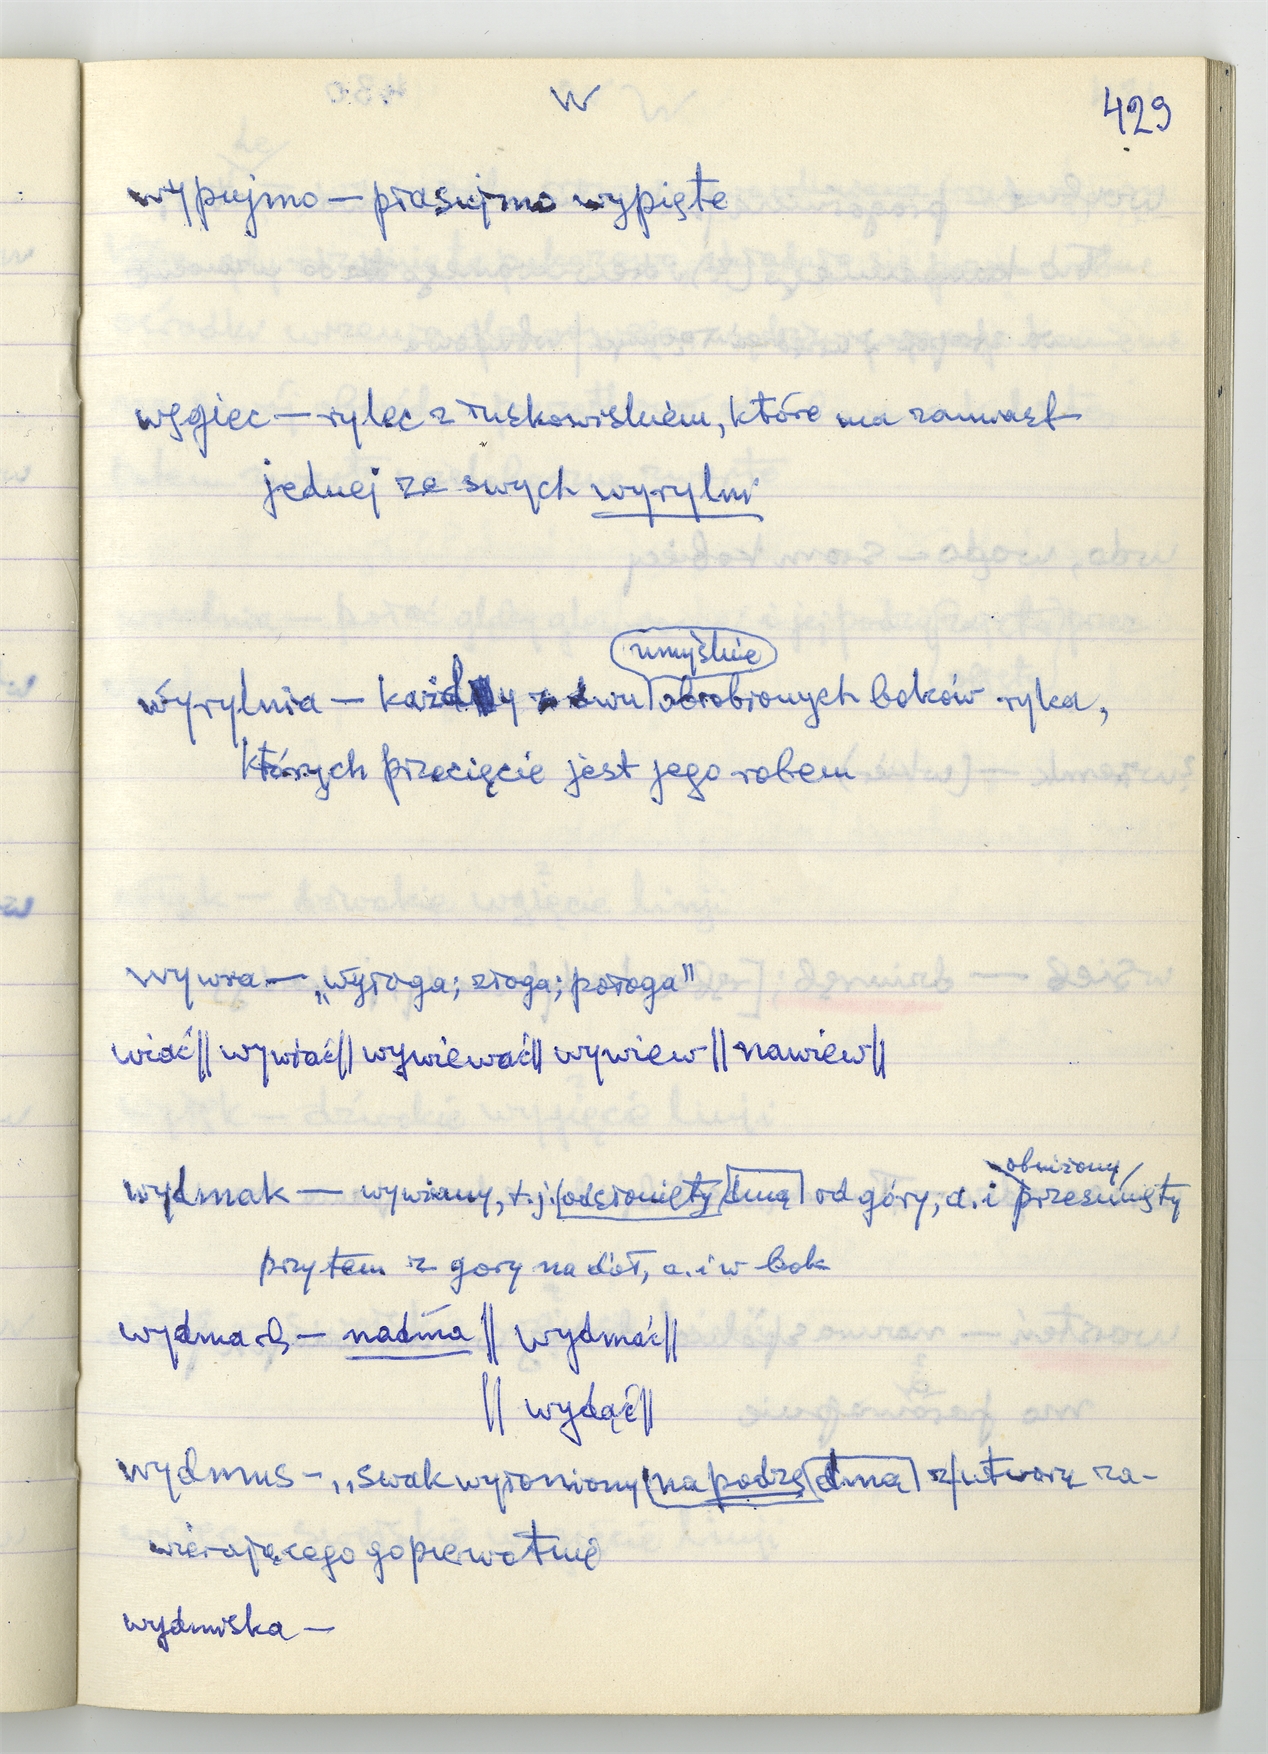 W
429
wypujmo — płasujmo wypięte
węgiec — rylec z łuskowiskiem, które ma zamiast
jednej ze swych wyrylni
wyrylnia — każdy z dwu umyślnie obrobionych boków ryka,
których przecięcie jest jego robem
wywia — „wyłoga; złoga; połoga"
wiać || wywiać || wywiewać || wywiew || nawiew ||
wydmak — wywiany, t.j. odsłonięty dmą od góry, a. i obniżony/przesunięty
przytem z gory na dół, a. i w bok
wydma — nadma || wydmać ||
|| wydąć ||
wydmus — „swak wyłoniony na podzę dmą z utworu za-
wierającego go pierwotnie
wydmiska —